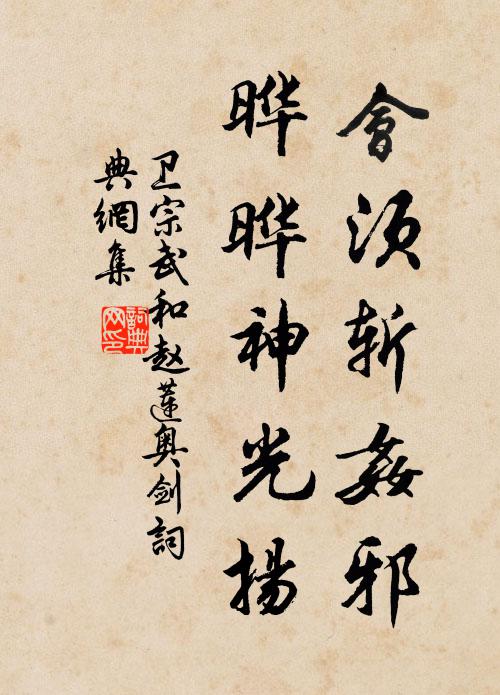 會須斬姦邪
曄曄神光揚
卫宗武和赵莲奥剑詞
典網集
詞典
网印